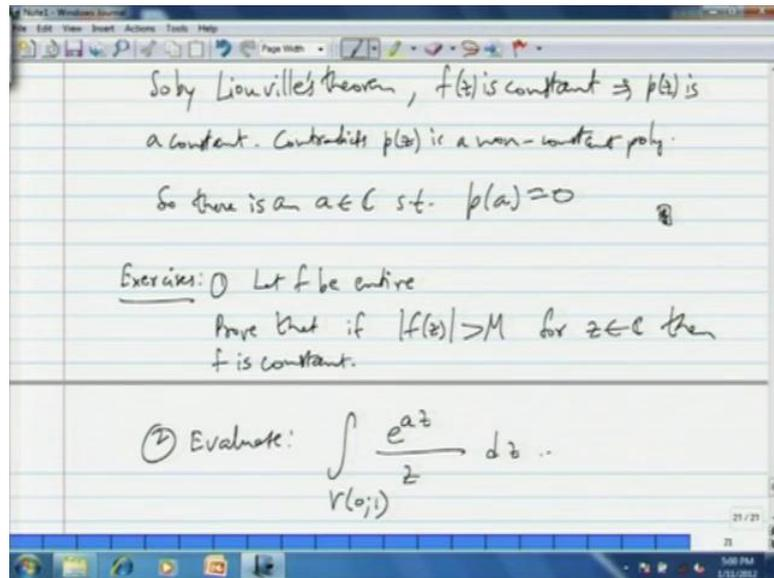 Note1 - Windows Journal
File Edit View Insert Actions Tools Help
Page Width
So by Liouville's theorem, f(z) is constant ⇒ p(z) is
a constant. Contradicts p(z) is a non-constant poly.
So there is an a ∈ ℂ s.t. p(a) = 0
Exercises: ① Let f be entire
Prove that if |f(z)| > M for z ∈ ℂ then
f is constant.
② Evaluate: ∫_{γ(0;1)} e^{az}/z dz ..
21 / 21
21
5:00 PM
1/11/2012